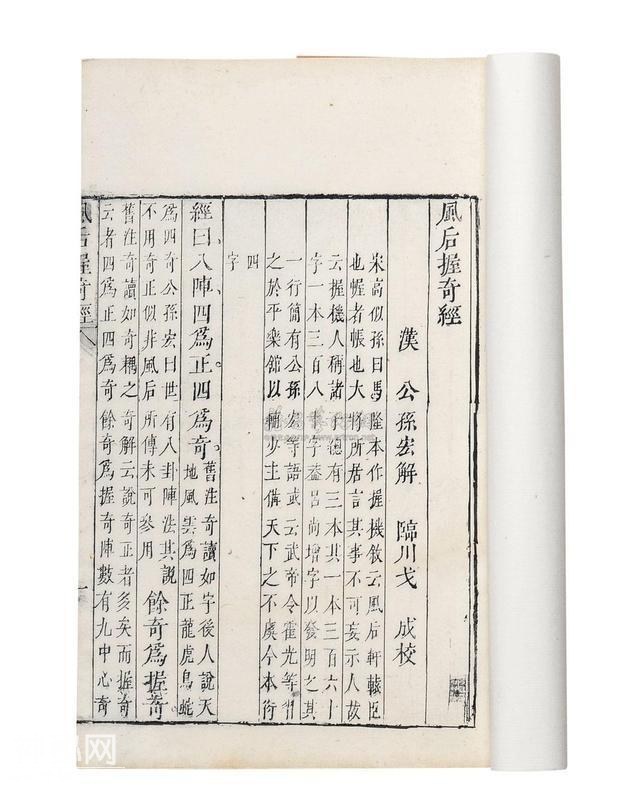 風后握奇經
漢 公孫宏解 臨川戈 成校
宋高似孫曰馬隆本作握機敘云風后軒轅臣
也幄者帳也大將所居言其事不可妄示人故
云握機人稱諸子總有三本其一本三百六十
字一本三百八十字葢呂尚增字以發明之其
一行簡有公孫宏等語或云武帝令霍光等習
之於平樂舘以輔少主備天下之不虞今本衍
四
字
經曰八陣四爲正四爲奇
舊注奇讀如字後人說天
地風雲爲四正龍虎鳥蛇
爲四奇公孫宏曰世有八卦陣法其說
不用奇正似非風后所傳未可參用
餘奇爲握奇
舊注奇讀如奇耦之奇解云說奇正者多矣而握奇
云者四爲正四爲奇餘奇爲握奇陣數有九中心奇
風后握奇經
一